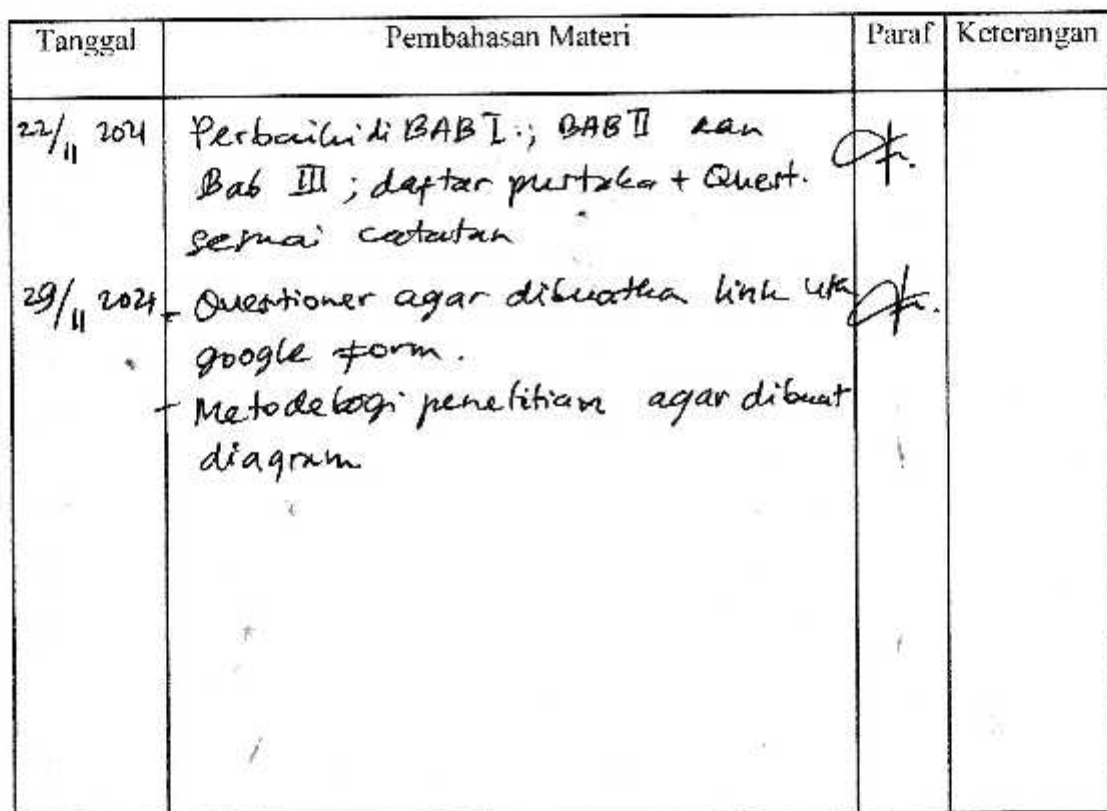 Tanggal Pembahasan Materi Paraf Keterangan
22/11 2021 Perbaiki di BAB I ; BAB II dan
Bab III ; daftar pustaka + Quest.
sesuai catatan
29/11 2021 - Questioner agar dibuatka link utk
google form.
- Metodelogi penelitian agar dibuat
diagram